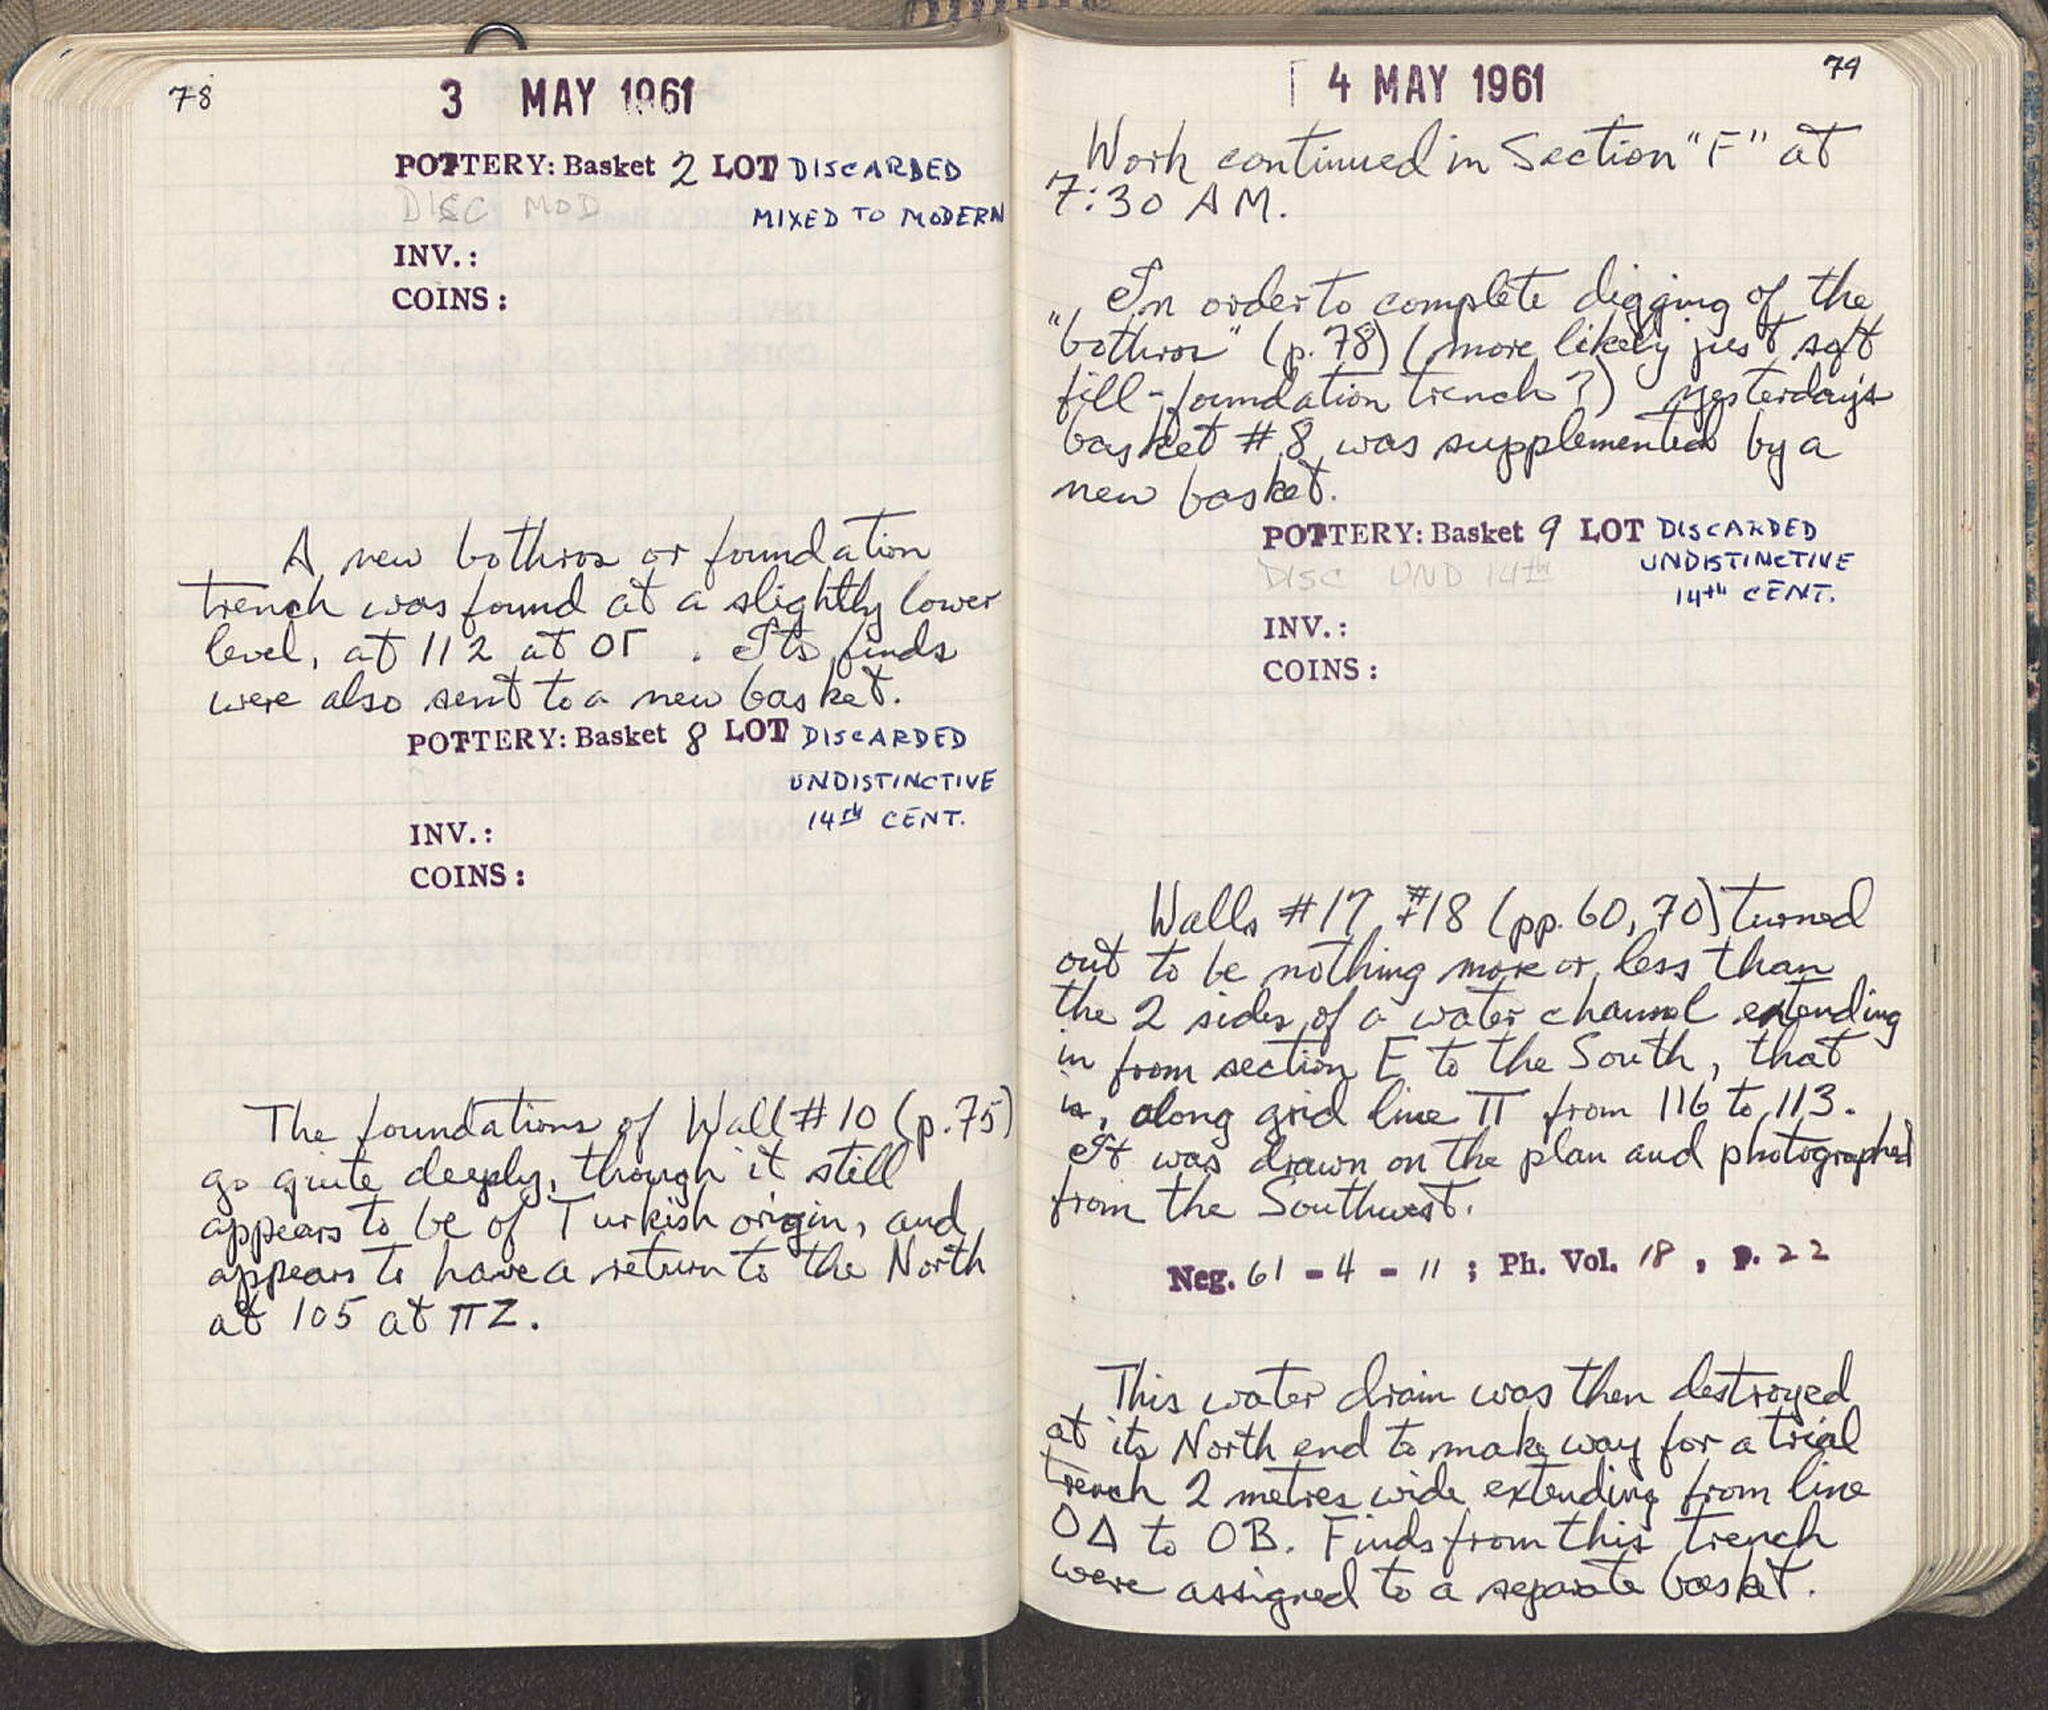 78
3 MAY 1961
POTTERY: Basket 2 LOT DISCARDED
DISC MOD MIXED TO MODERN
INV.:
COINS:
A new bothros or foundation
trench was found at a slightly lower
level, at 112 at ΟΓ . Its finds
were also sent to a new basket.
POTTERY: Basket 8 LOT DISCARDED
UNDISTINCTIVE
14th CENT.
INV.:
COINS:
The foundations of Wall #10 (p.75)
go quite deeply, though it still
appears to be of Turkish origin, and
appears to have a return to the North
at 105 at ΠΖ.
79
4 MAY 1961
Work continued in Section "F" at
7:30 AM.
In order to complete digging of the
"bothros" (p. 78) (more likely just soft
fill - foundation trench?) yesterday's
basket #8 was supplemented by a
new basket.
POTTERY: Basket 9 LOT DISCARDED
DISC UND 14th UNDISTINCTIVE
14th CENT.
INV.:
COINS:
Walls #17 + #18 (pp. 60, 70) turned
out to be nothing more or less than
the 2 sides of a water channel extending
in from section E to the South, that
is, along grid line Π from 116 to 113.
It was drawn on the plan and photographed
from the Southwest.
Neg. 61 - 4 - 11 ; Ph. Vol. 18 , p. 22
This water drain was then destroyed
at its North end to make way for a trial
trench 2 metres wide extending from line
ΟΔ to ΟΒ. Finds from this trench
were assigned to a separate basket.